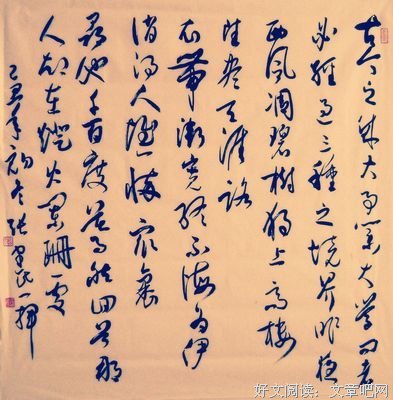 古今之成大事業大學問者
必經過三種之境界昨夜
西風凋碧樹獨上高樓
望盡天涯路
衣帶漸寬終不悔為伊
消得人憔悴眾裏
尋他千百度驀然回首那
人却在燈火闌珊處
己丑年初冬張一揮
好文阅读：文章吧网